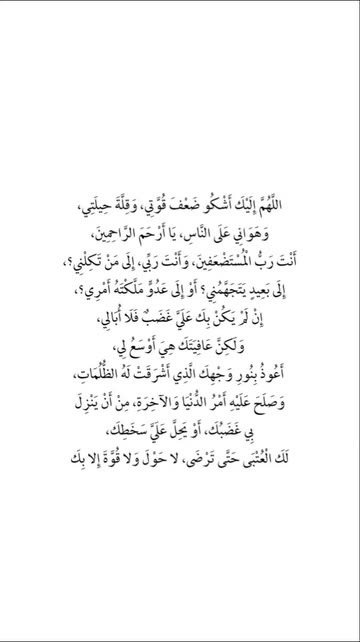 اللَّهُمَّ إِلَيْكَ أَشْكُو ضَعْفَ قُوَّتِي، وَقِلَّةَ حِيلَتِي،
وَهَوَانِي عَلَى النَّاسِ، يَا أَرْحَمَ الرَّاحِمِينَ،
أَنْتَ رَبُّ الْمُسْتَضْعَفِينَ، وَأَنْتَ رَبِّي، إِلَى مَنْ تَكِلُنِي؟،
إِلَى بَعِيدٍ يَتَجَهَّمُنِي؟ أَوْ إِلَى عَدُوٍّ مَلَّكْتَهُ أَمْرِي؟،
إِنْ لَمْ يَكُنْ بِكَ عَلَيَّ غَضَبٌ فَلَا أُبَالِي،
وَلَكِنَّ عَافِيَتَكَ هِيَ أَوْسَعُ لِي،
أَعُوذُ بِنُورِ وَجْهِكَ الَّذِي أَشْرَقَتْ لَهُ الظُّلُمَاتِ،
وَصَلَحَ عَلَيْهِ أَمْرُ الدُّنْيَا وَالآخِرَةِ، مِنْ أَنْ يَنْزِلَ
بِي غَضَبُكَ، أَوْ يَحِلَّ عَلَيَّ سَخَطِكَ،
لَكَ الْعُتْبَى حَتَّى تَرْضَى، لا حَوْلَ وَلا قُوَّةَ إِلا بِكَ